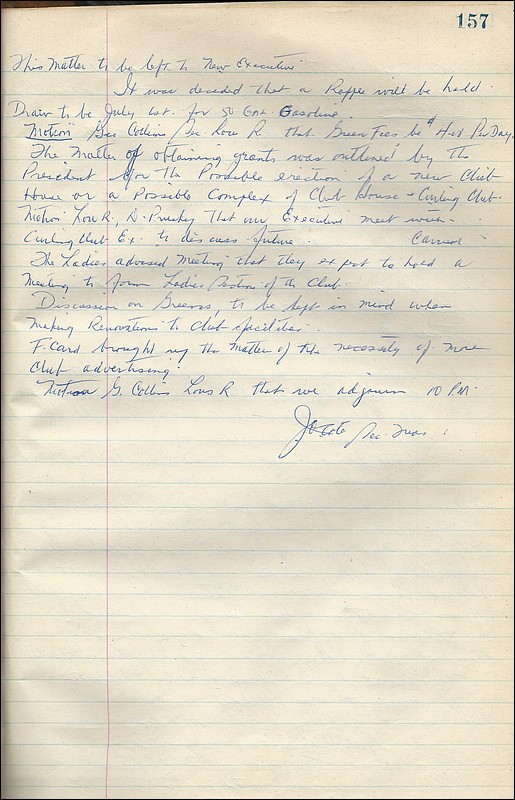 157
This Matter to be left to New Executive
It was decided that a Raffle will be held.
Draw to be July 1st. for 50 Gal Gasoline.
Motion Geo Collins Sec Lou R. that Green Fees be $ Per Day.
The Matter of obtaining grants was outlined by the
President for the Possible erection of a new Club
House or a Possible Complex of Club House - Curling Club.
Motion Lou R., N. that our Executive meet with
Curling Club Ex. to discuss future. Carried
The Ladies advised Meeting that they expect to hold a
Meeting to form Ladies Section of the Club.
Discussion on Greens, to be kept in mind when
making Renovations to Club facilities.
F. Card brought up the matter of the necessity of more
Club advertising.
Motion G. Collins Lou R that we adjourn 10 PM.
Sec. Treas